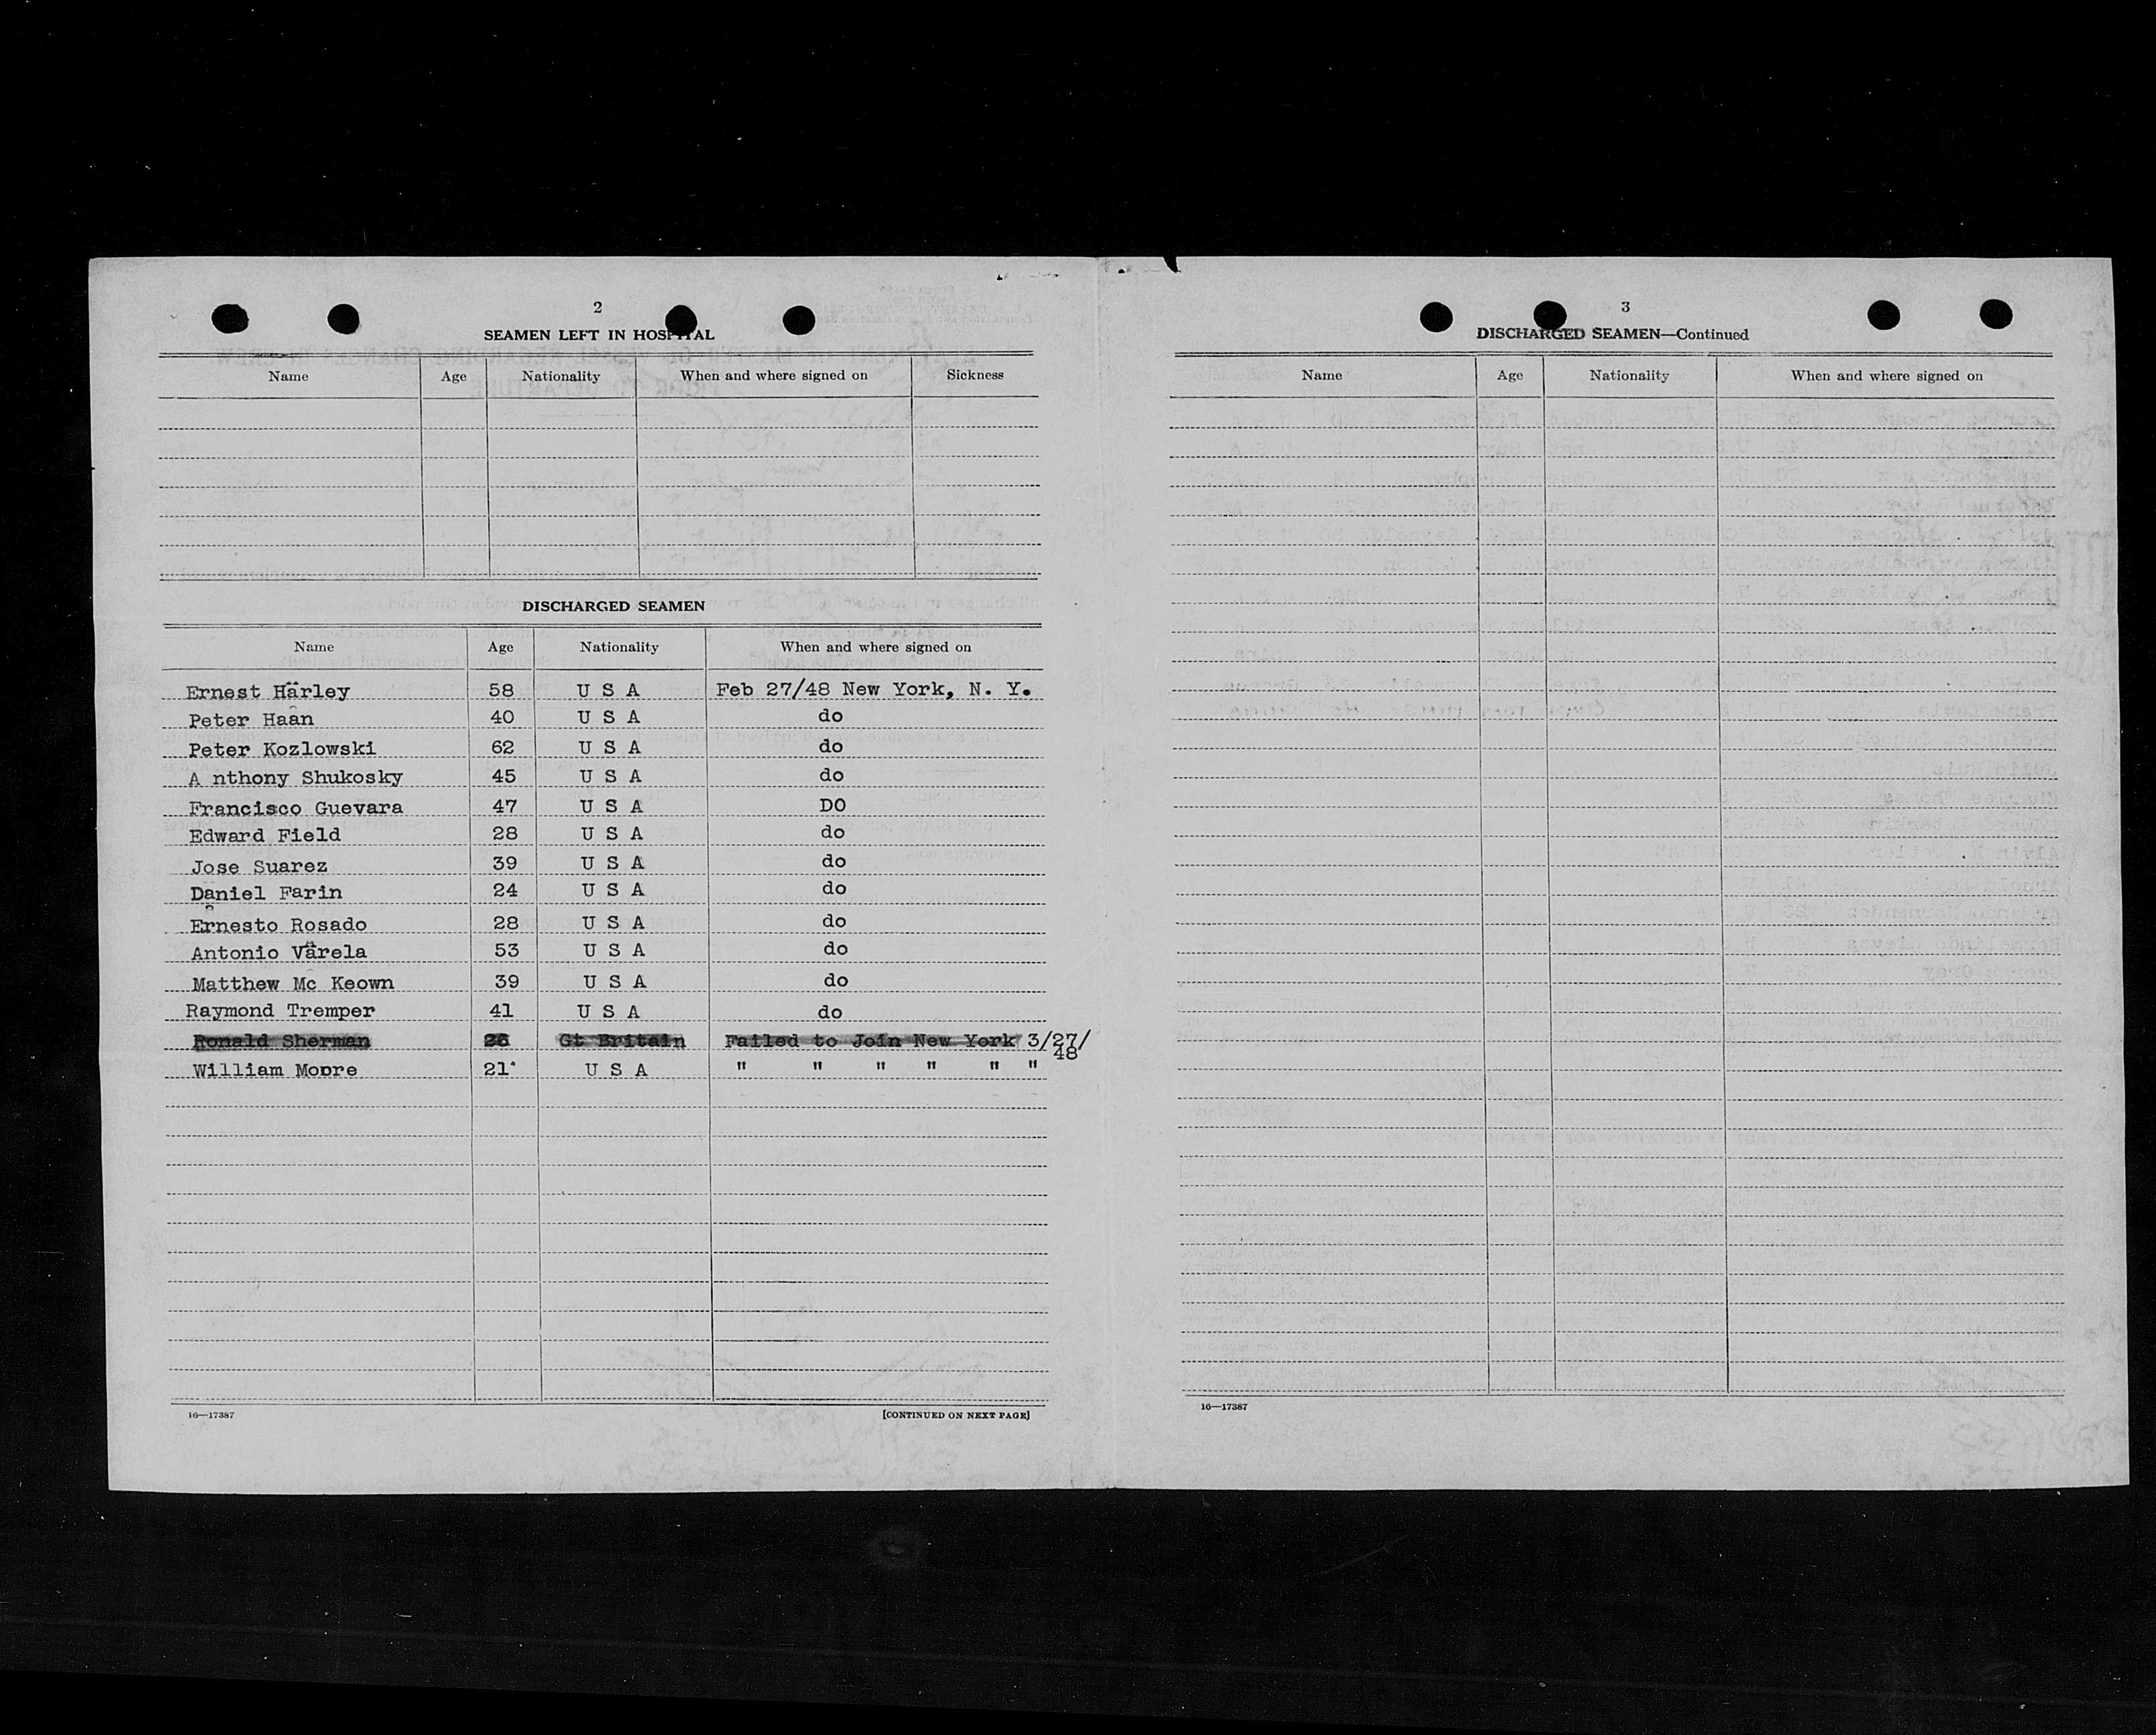 2
SEAMEN LEFT IN HOSPITAL
Name Age Nationality When and where signed on Sickness
DISCHARGED SEAMEN
Name Age Nationality When and where signed on
Ernest Harley 58 U S A Feb 27/48 New York, N. Y.
Peter Haan 40 U S A do
Peter Kozlowski 62 U S A do
A nthony Shukosky 45 U S A do
Francisco Guevara 47 U S A DO
Edward Field 28 U S A do
Jose Suarez 39 U S A do
Daniel Farin 24 U S A do
Ernesto Rosado 28 U S A do
Antonio Varela 53 U S A do
Matthew Mc Keown 39 U S A do
Raymond Tremper 41 U S A do
Ronald Sherman 26 Gt Britain Failed to Join New York 3/27/
48
William Moore 21 U S A " " " " " "
16—17387 [CONTINUED ON NEXT PAGE]
3
DISCHARGED SEAMEN—Continued
Name Age Nationality When and where signed on
16—17387